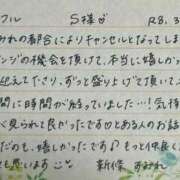 フル S様♡ R8.3
みれの都合によりキャンセルとなってしま
ンジの機会を頂けて、本当に嬉しかっ
迎えてたさり、ずっと盛り上げて頂いて
間に時間が触っていました…!気持
べ見られて良かったです♡とある人のお話
だのも、嬉しかったです♪もっと仲良く
う思います 新條 すみれ